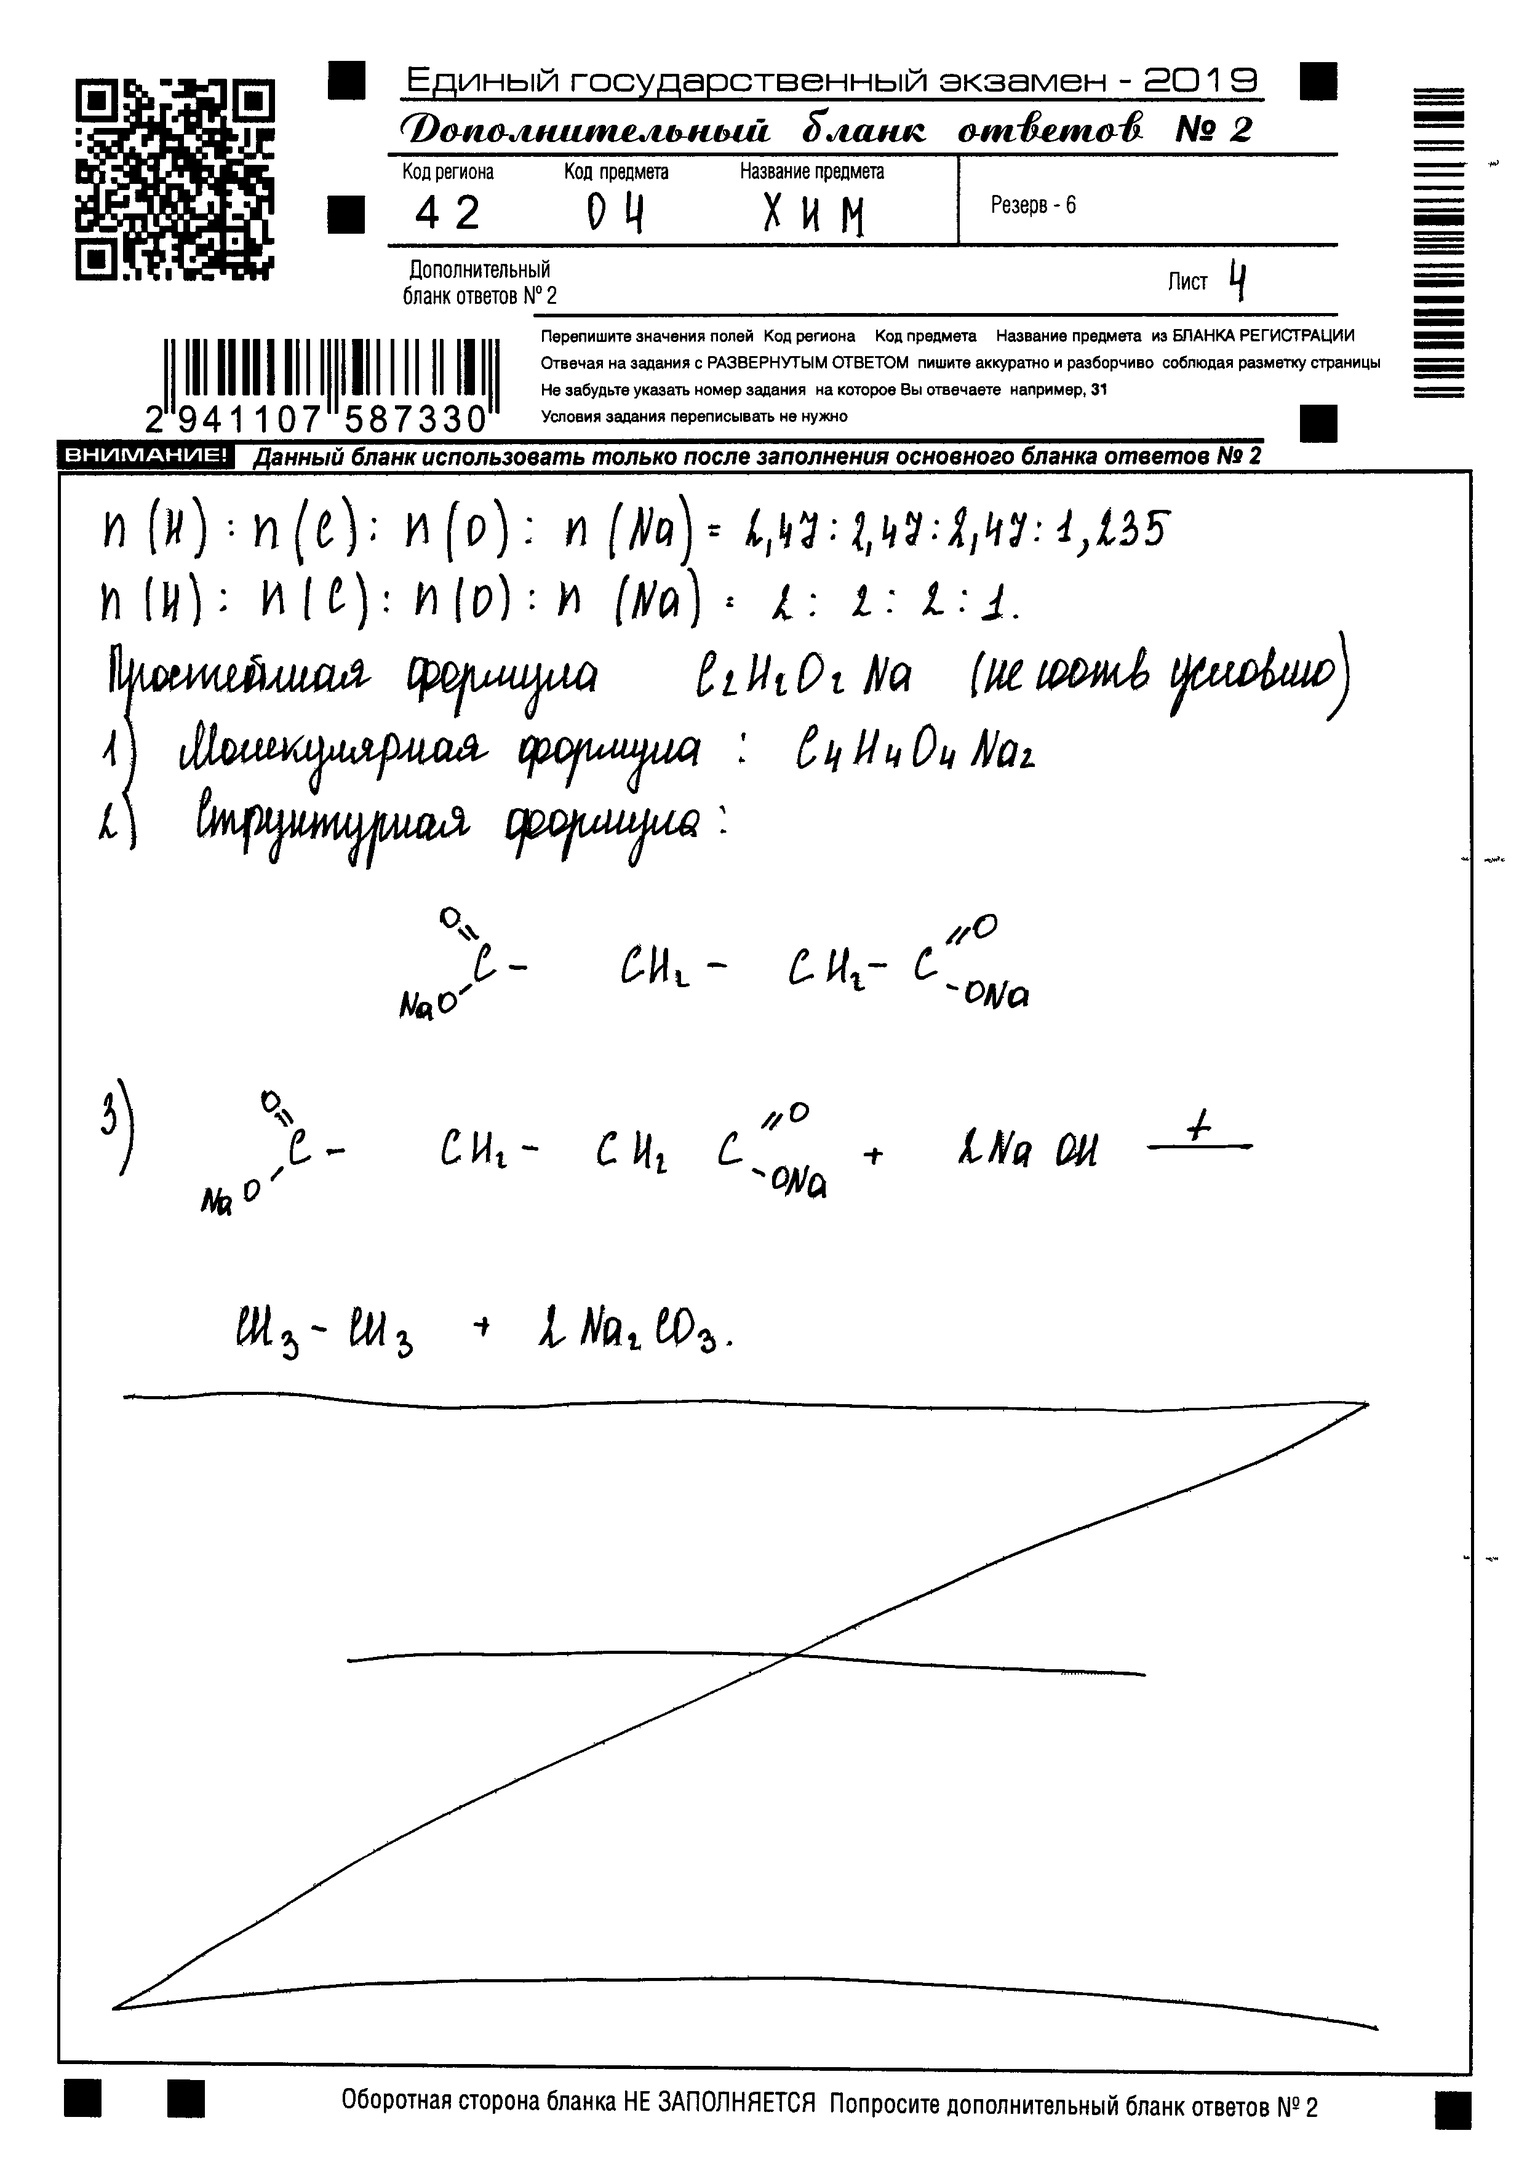 Единый государственный экзамен - 2019
Дополнительный бланк ответов № 2
Код региона Код предмета Название предмета
42 04 ХИМ
Резерв - 6
Дополнительный
бланк ответов № 2
Лист 4
Перепишите значения полей Код региона Код предмета Название предмета из БЛАНКА РЕГИСТРАЦИИ
Отвечая на задания с РАЗВЕРНУТЫМ ОТВЕТОМ пишите аккуратно и разборчиво соблюдая разметку страницы
Не забудьте указать номер задания на которое Вы отвечаете например, 31
Условия задания переписывать не нужно
2 941107 587330
ВНИМАНИЕ! Данный бланк использовать только после заполнения основного бланка ответов № 2
n (H) : n (C) : n (O) : n (Na) = 2,47 : 2,47 : 2,47 : 1,235
n (H) : n (C) : n (O) : n (Na) = 2 : 2 : 2 : 1.
Простейшая формула C₂H₂O₂Na (не соотв условию)
1) Молекулярная формула : C₄H₄O₄Na₂
2) Структурная формула :
O O
= C - CH₂ - CH₂ - C =
NaO - - ONa
3) O O
= C - CH₂ - CH₂ C = + 2NaOH t
NaO - - ONa
CH₃ - CH₃ + 2 Na₂CO₃.
Оборотная сторона бланка НЕ ЗАПОЛНЯЕТСЯ Попросите дополнительный бланк ответов № 2